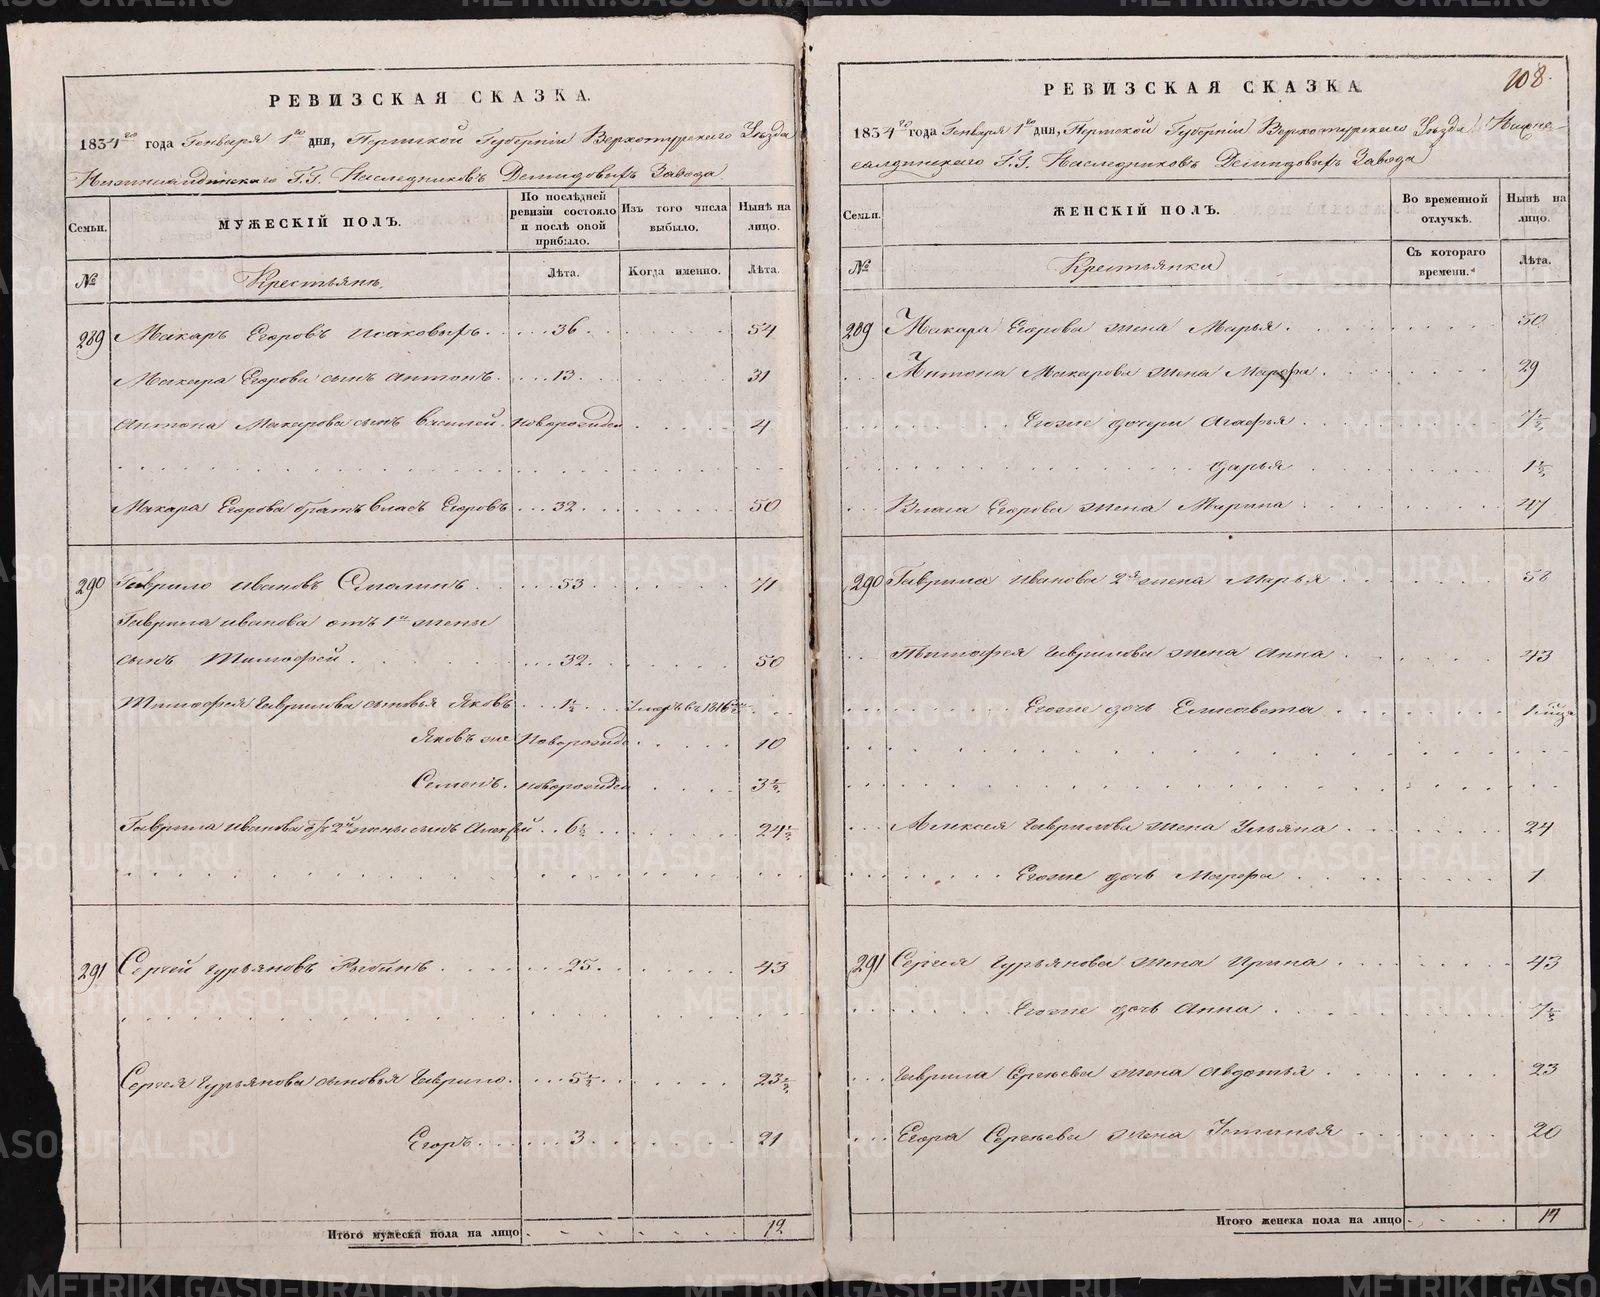 РЕВИЗСКАЯ СКАЗКА.
1834го года Генваря 1го дня, Пермской Губернiи Верхотурскаго Уѣзда
Нижнесалдинскаго Г.Г. Наслѣдниковъ Демидовыхъ Завода
Семьи.
МУЖЕСКIЙ ПОЛЪ.
По послѣдней ревизiи состояло и послѣ оной прибыло.
Изъ того числа выбыло.
Нынѣ на лицо.
№
Крестьянъ
Лѣта.
Когда именно.
Лѣта.
289 Макаръ Егоровъ Исаковыхъ 36 54
Макара Егорова сынъ Антонъ 13 31
Антона Макарова сынъ Василей новорожден 4
Макара Егорова братъ Власъ Егоровъ 32 50
290 Гаврило Ивановъ 53 71
Гаврила Иванова отъ 1й жены
сынъ Тимофей 32 50
Тимофея Гаврилова сыновья Яковъ 1½ умеръ въ 1816
Яковъ же Новорожде 10
Семенъ новорожден 3½
Гаврила Иванова отъ 2й жены сынъ Алексѣй 6½ 24½
291 Сергей Гурьяновъ Рыбинъ 25 43
Сергея Гурьянова сыновья Гаврило 5½ 23½
Егоръ 3 21
Итого мужеска пола на лицо 12
108
РЕВИЗСКАЯ СКАЗКА
1834го года Генваря 1го дня, Пермской Губернiи Верхотурскаго Уѣзда Нижне-
салдинскаго Г.Г. Наслѣдниковъ Демидовыхъ Завода
Семьи.
ЖЕНСКIЙ ПОЛЪ.
Во временной отлучкѣ.
Нынѣ на лицо.
№
Крестьянки
Съ котораго времени.
Лѣта.
289 Макара Егорова жена Марья 50
Антона Макарова жена Марфа 29
Егоже дочери Агафья 7½
Дарья 1½
Власа Егорова жена Марина 47
290 Гаврила Иванова 2я жена Марья 58
Тимофея Гаврилова жена Анна 43
Егоже дочь Елисавета 1
Алексея Гаврилова жена Ульяна 24
Егоже дочь Марфа 1
291 Сергея Гурьянова жена Ирина 43
Егоже дочь Анна 7½
Гаврила Сергѣева жена Авдотья 23
Егора Сергѣева жена Устинья 20
Итого женска пола на лицо 14
METRIKI.GASO-URAL.RU